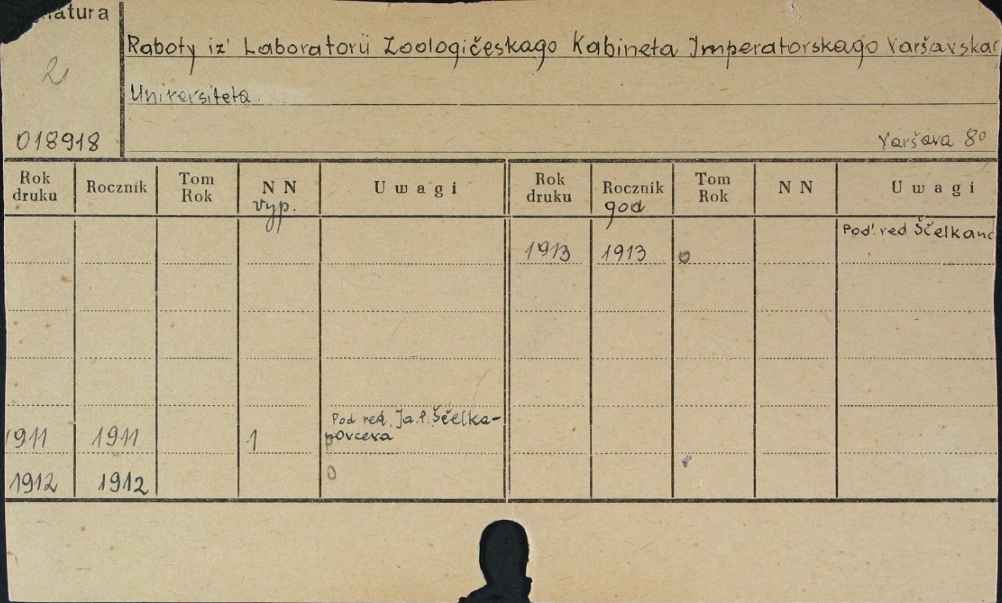 natura
Raboty iz' Laboratorii Zoologičeskago Kabineta Imperatorskago Varšavskag
2
Universiteta.
018918
Varšava 8°
Rok druku Rocznik Tom Rok NN Uwagi Rok druku Rocznik Tom Rok NN Uwagi
vyp. god
Pod' red Ščelkano
1913 1913 0
Pod red. Ja. P. Ščelka-
1911 1911 1 novceva
1912 1912 0